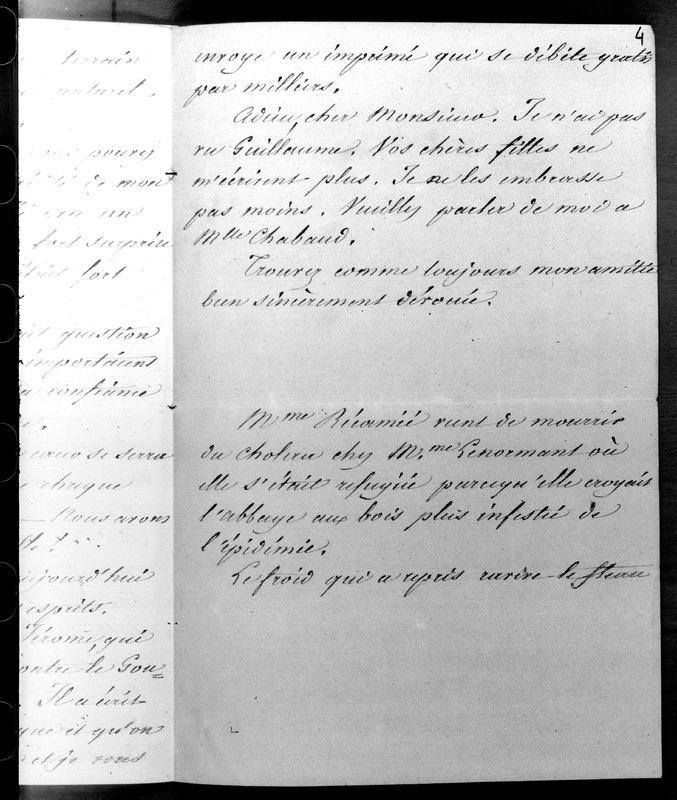 terrain
naturel.
pourj
de mon
un
fort surprise
fort
question
importaient
confiance
se serra
chaque
Nous avons
aujourd'hui
esprits.
Jérome, qui
contre le Gou=
Il a écrit
que et qu'on
et je vous
4
envoye un imprimé qui se débite gratis
par milliers.
Adieu, cher Monsieur. Je n'ai pas
vu Guillaume. Vos chères filles ne
m'écrivent plus. Je ne les embrasse
pas moins. Veuillez parler de moi a
Mlle Chabaud.
Trouvez comme toujours mon amitié
bien sincèrement dévouée.
Mme Récamié vient de mourrir
du Cholera chez Mme Lenormant où
elle s'était refugiée parcequ'elle croyait
l'abbaye aux bois plus infestée de
l'épidémie.
Le froid qui a repris ravive le fleau